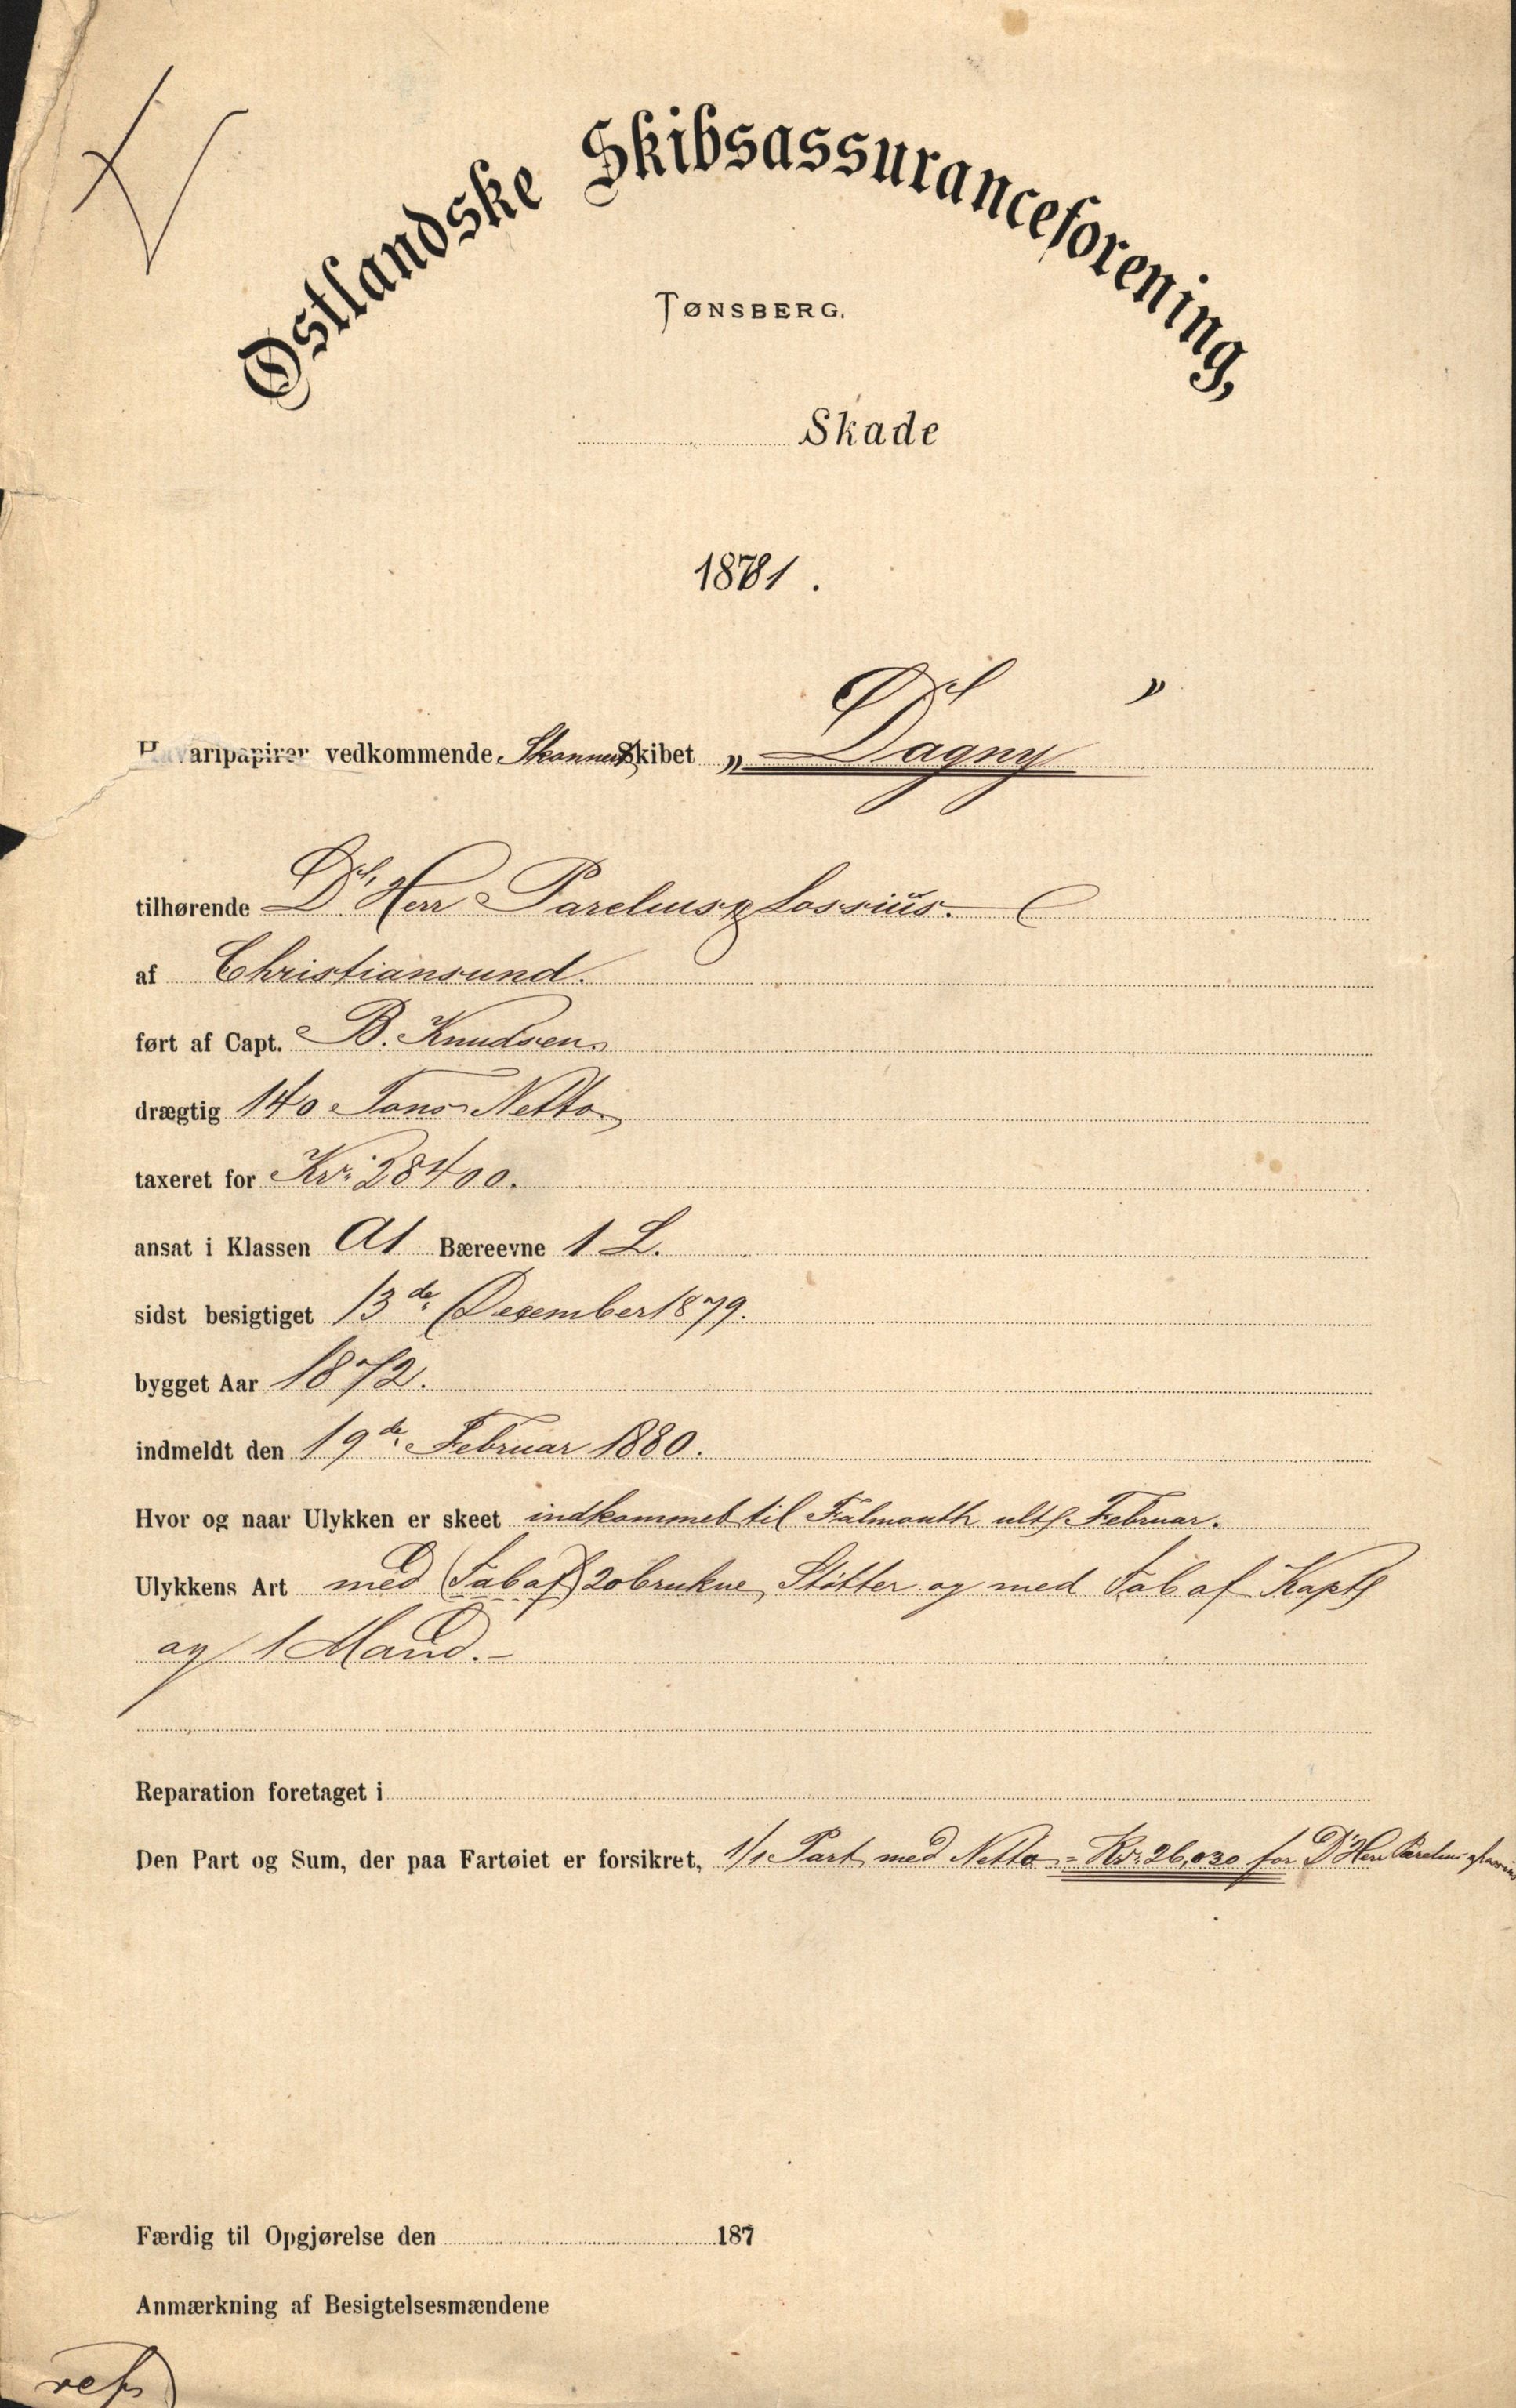 Østlandske Skibsassuranceforening,
TØNSBERG.
Skade
1881.
Havaripapirer vedkommende Skonnert Skibet „Dagny”
tilhørende D'Herr Parelius & Lossius.
af Christiansund.
ført af Capt. B. Knudsen
drægtig 140 Tons Netto
taxeret for Kr: 28400.
ansat i Klassen A1 Bæreevne 1 L.
sidst besigtiget 13de December 1879.
bygget Aar 1872.
indmeldt den 19de Februar 1880.
Hvor og naar Ulykken er skeet indkommet til Falmouth ult Februar.
Ulykkens Art med (Tab af) 20 brukne Støtter og med Tab af Kapt
og 1 Mand.-
Reparation foretaget i
Den Part og Sum, der paa Fartøiet er forsikret, 1/1 Part med Netto = Kr: 26,030 for D'Herr Parelius & Lossius
Færdig til Opgjørelse den 187
Anmærkning af Besigtelsesmændene